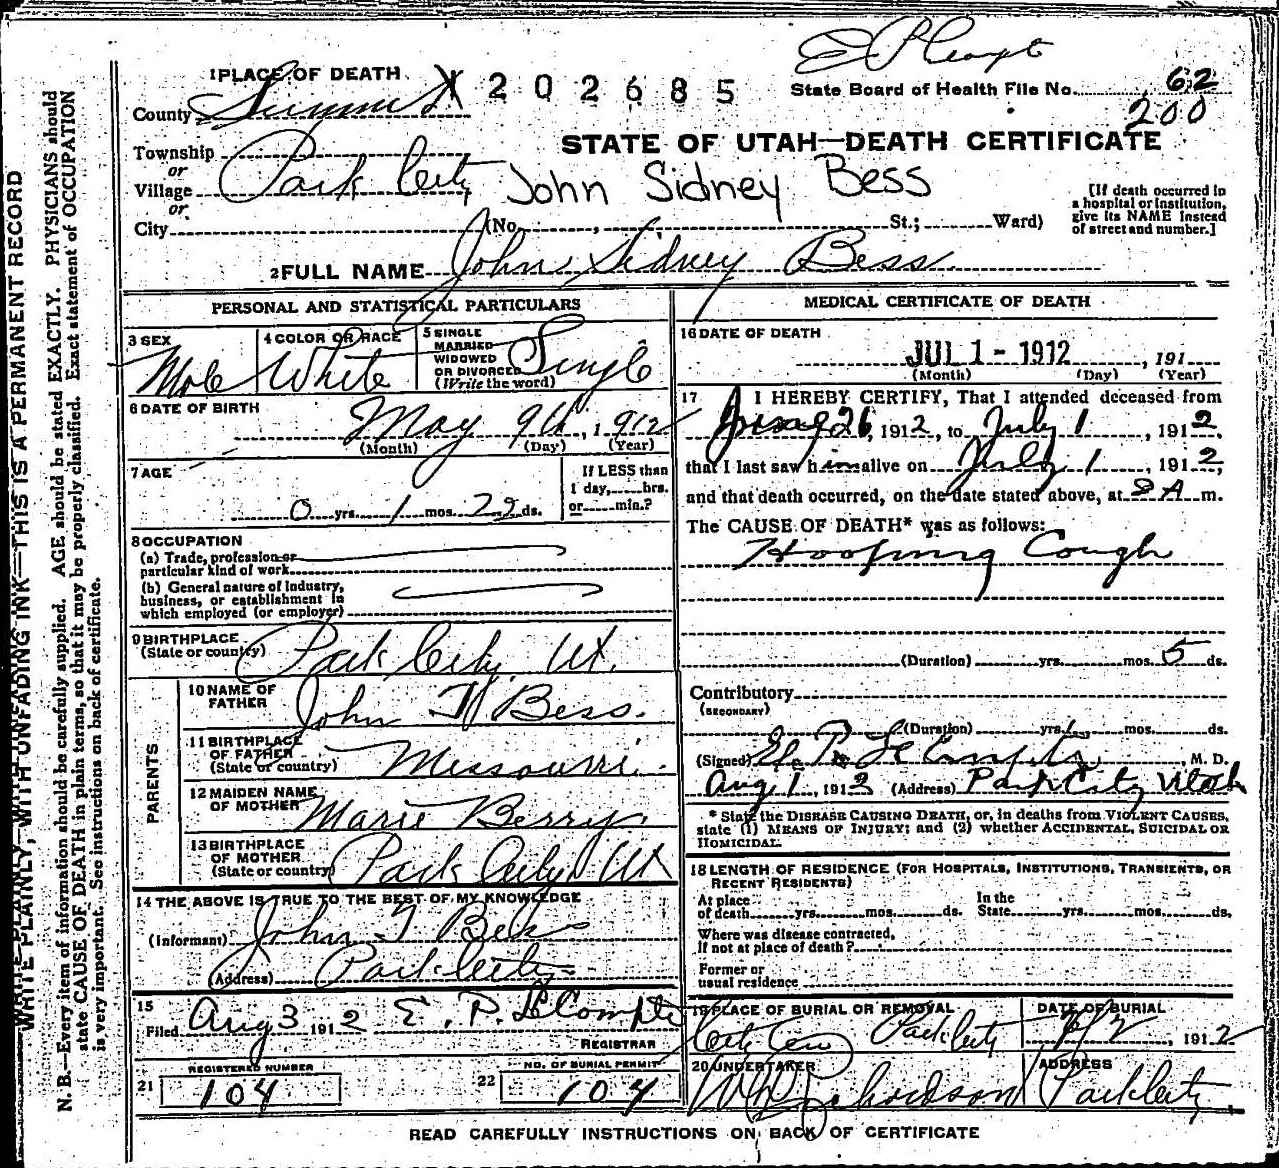 1 PLACE OF DEATH
X 202685
State Board of Health File No. 62
200
County Summit
STATE OF UTAH—DEATH CERTIFICATE
Township
or
Village Park City
John Sidney Bess
or
City (No. , St.; Ward)
[If death occurred in
a hospital or institution,
give its NAME instead
of street and number.]
2 FULL NAME John Sidney Bess
PERSONAL AND STATISTICAL PARTICULARS
3 SEX
Male
4 COLOR OR RACE
White
5 SINGLE
MARRIED
WIDOWED
OR DIVORCED
(Write the word)
Single
6 DATE OF BIRTH
May 9th, 1912
(Month) (Day) (Year)
7 AGE
0 yrs. 1 mos. 22 ds.
If LESS than
1 day, hrs.
or min.?
8 OCCUPATION
(a) Trade, profession or
particular kind of work
(b) General nature of industry,
business, or establishment in
which employed (or employer)
9 BIRTHPLACE
(State or country)
Park City, Ut.
PARENTS
10 NAME OF
FATHER
John T Bess.
11 BIRTHPLACE
OF FATHER
(State or country)
Missouri.
12 MAIDEN NAME
OF MOTHER
Marie Berry.
13 BIRTHPLACE
OF MOTHER
(State or country)
Park City Ut
14 THE ABOVE IS TRUE TO THE BEST OF MY KNOWLEDGE
(Informant) John T Bess
(Address) Park City
15
Filed Aug 3 1912 E. P. LeCompte
REGISTRAR
REGISTERED NUMBER
21 104
NO. OF BURIAL PERMIT
22 104
MEDICAL CERTIFICATE OF DEATH
16 DATE OF DEATH
JUL 1 - 1912, 191
(Month) (Day) (Year)
17 I HEREBY CERTIFY, That I attended deceased from
26, 1912, to July 1, 1912,
that I last saw him alive on July 1, 1912,
and that death occurred, on the date stated above, at 8 A m.
The CAUSE OF DEATH* was as follows:
Hooping Cough
(Duration) yrs. mos. 5 ds.
Contributory
(SECONDARY)
(Duration) yrs. mos. ds.
(Signed) E. P. LeCompte, M. D.
Aug 1, 1912 (Address) Park City Utah
* State the DISEASE CAUSING DEATH, or, in deaths from VIOLENT CAUSES,
state (1) MEANS OF INJURY; and (2) whether ACCIDENTAL, SUICIDAL OR
HOMICIDAL.
18 LENGTH OF RESIDENCE (FOR HOSPITALS, INSTITUTIONS, TRANSIENTS, OR
RECENT RESIDENTS)
At place
of death yrs. mos. ds.
In the
State yrs. mos. ds.
Where was disease contracted,
If not at place of death?
Former or
usual residence
19 PLACE OF BURIAL OR REMOVAL
City Cem Park City
DATE OF BURIAL
7/2, 1912
20 UNDERTAKER
Richardson
ADDRESS
Park City
READ CAREFULLY INSTRUCTIONS ON BACK OF CERTIFICATE
WRITE PLAINLY, WITH UNFADING INK—THIS IS A PERMANENT RECORD
N. B.—Every item of information should be carefully supplied. AGE should be stated EXACTLY. PHYSICIANS should
state CAUSE OF DEATH in plain terms, so that it may be properly classified. Exact statement of OCCUPATION
is very important. See instructions on back of certificate.